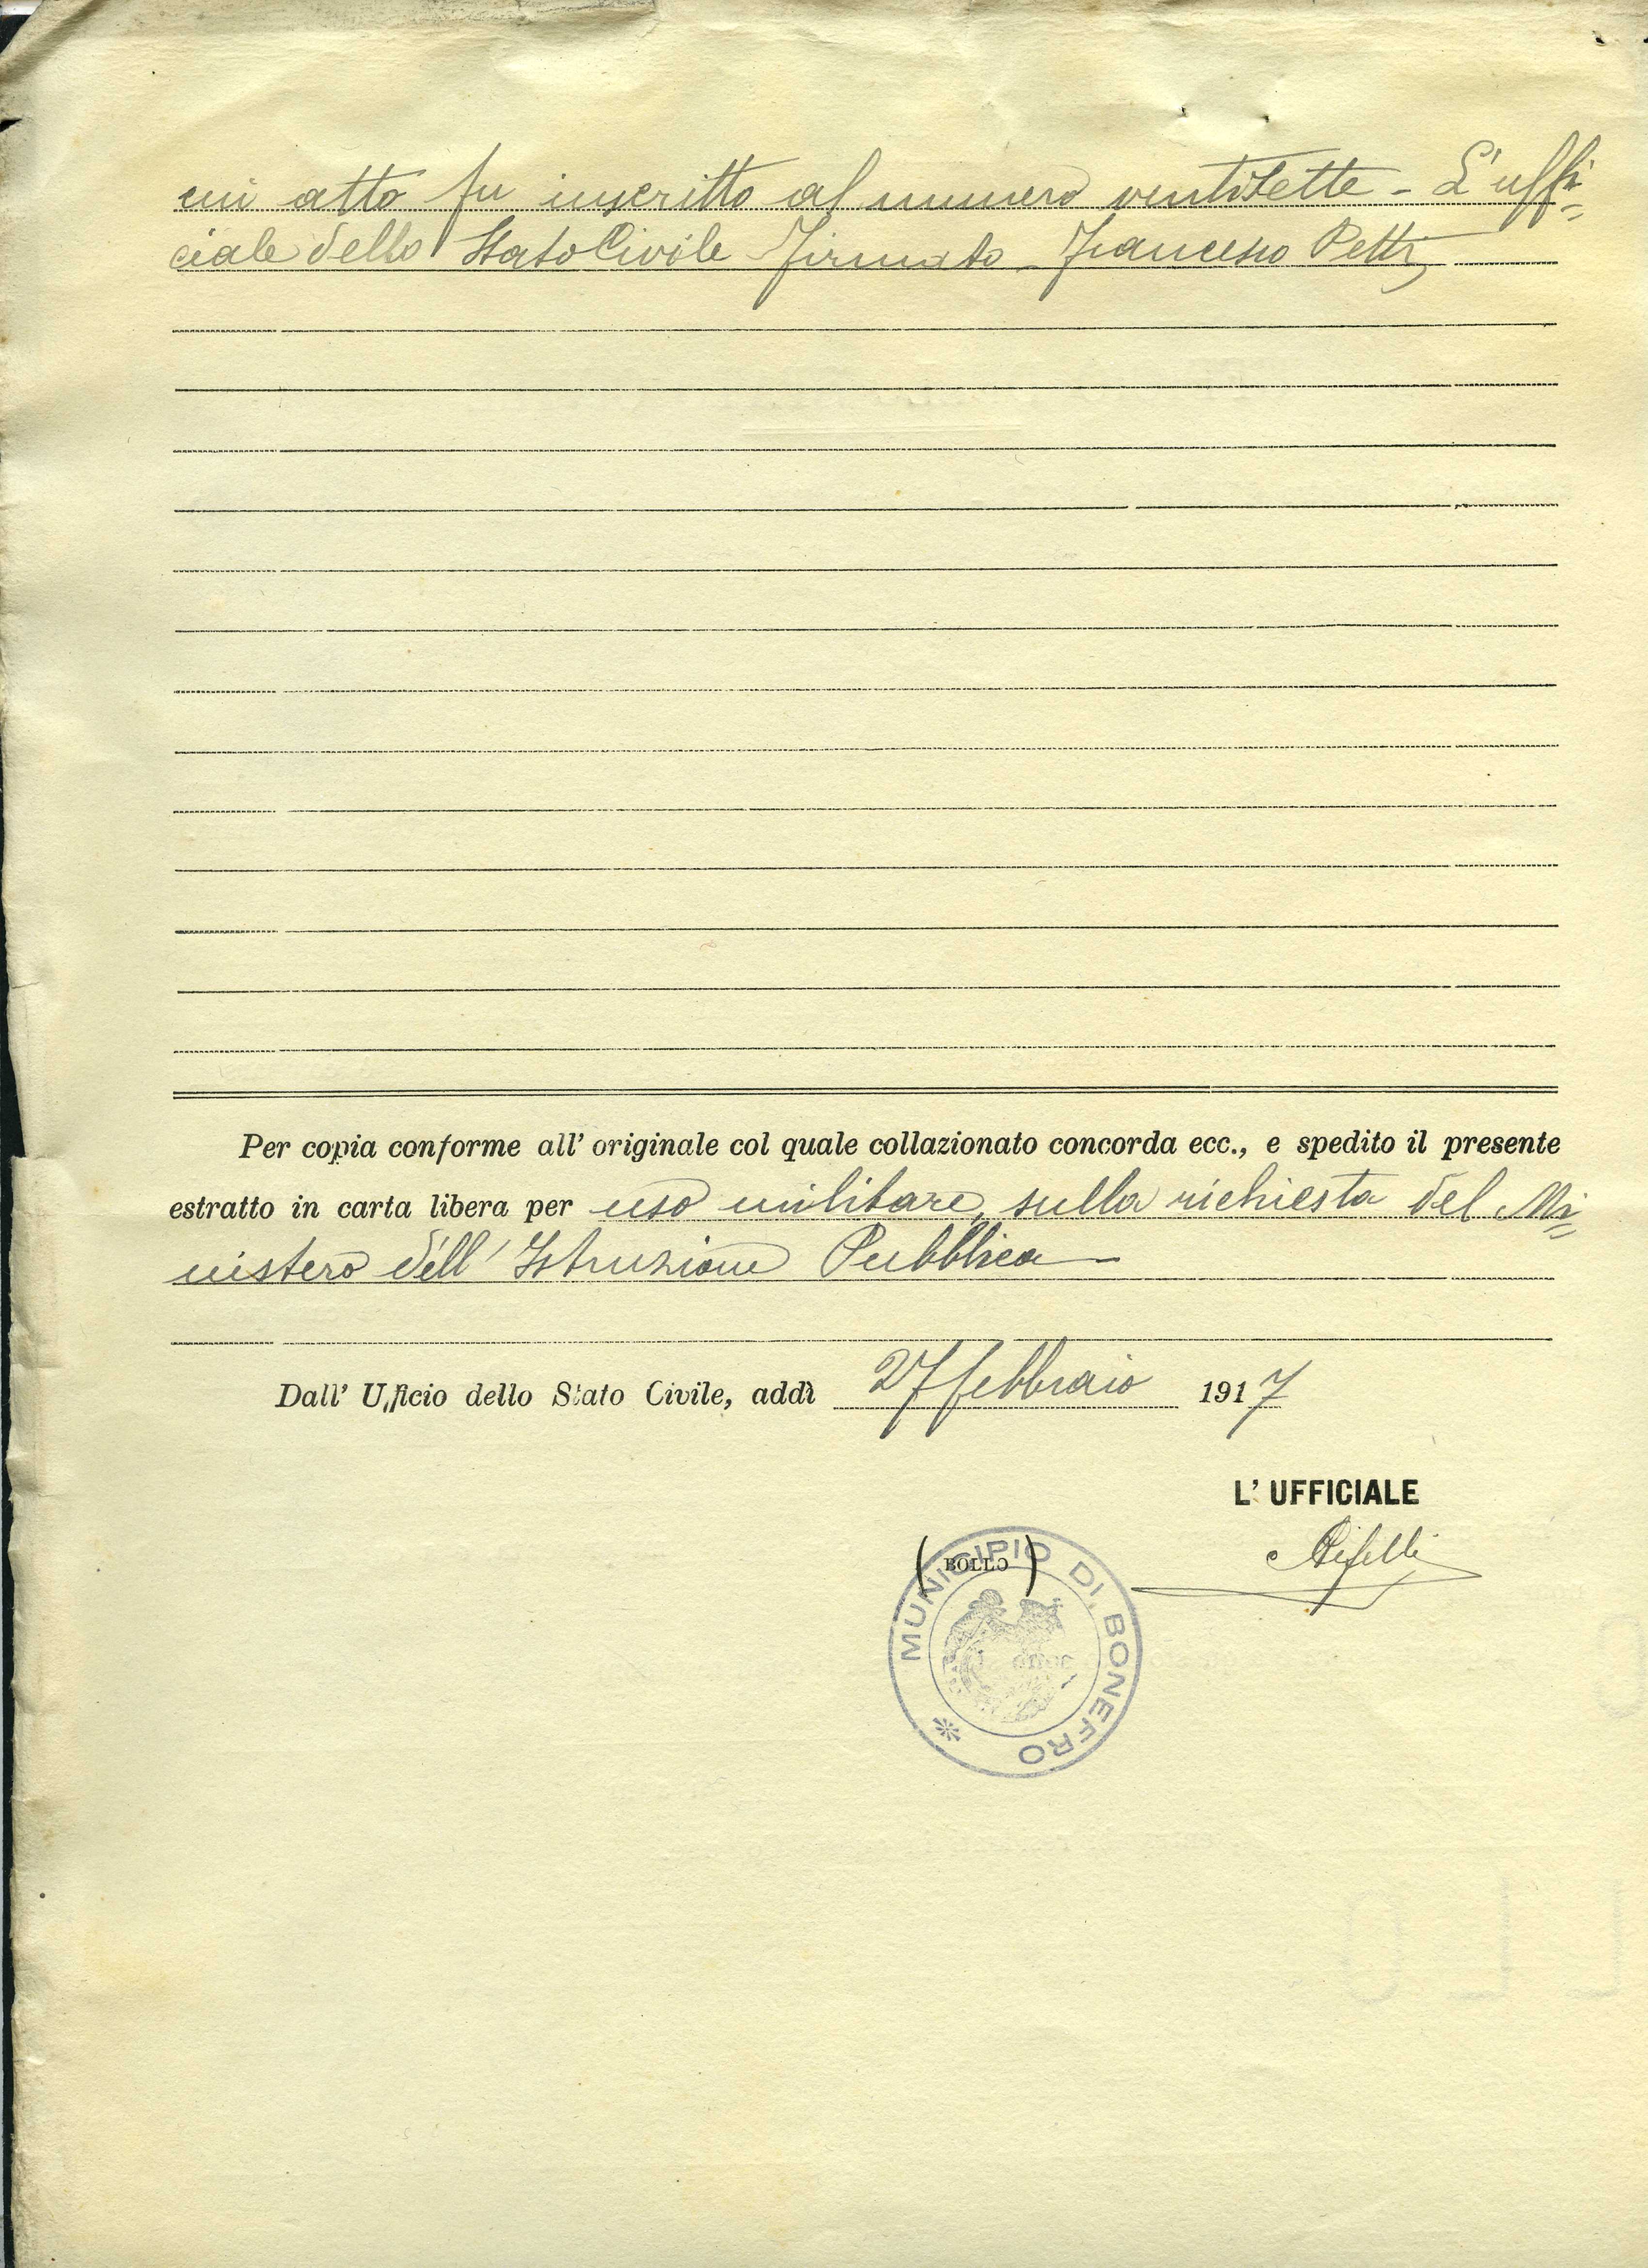 cui atto fu inscritto al numero ventisette - L'uffi=
ciale dello Stato Civile - Firmato - Francesco Petti
Per copia conforme all' originale col quale collazionato concorda ecc., e spedito il presente
estratto in carta libera per uso militare, sulla richiesta del Mi=
nistero dell' Istruzione Pubblica
Dall' Ufficio dello Stato Civile, addì 27 febbraio 1917
L' UFFICIALE
(BOLLO)
MUNICIPIO DI BONEFRO